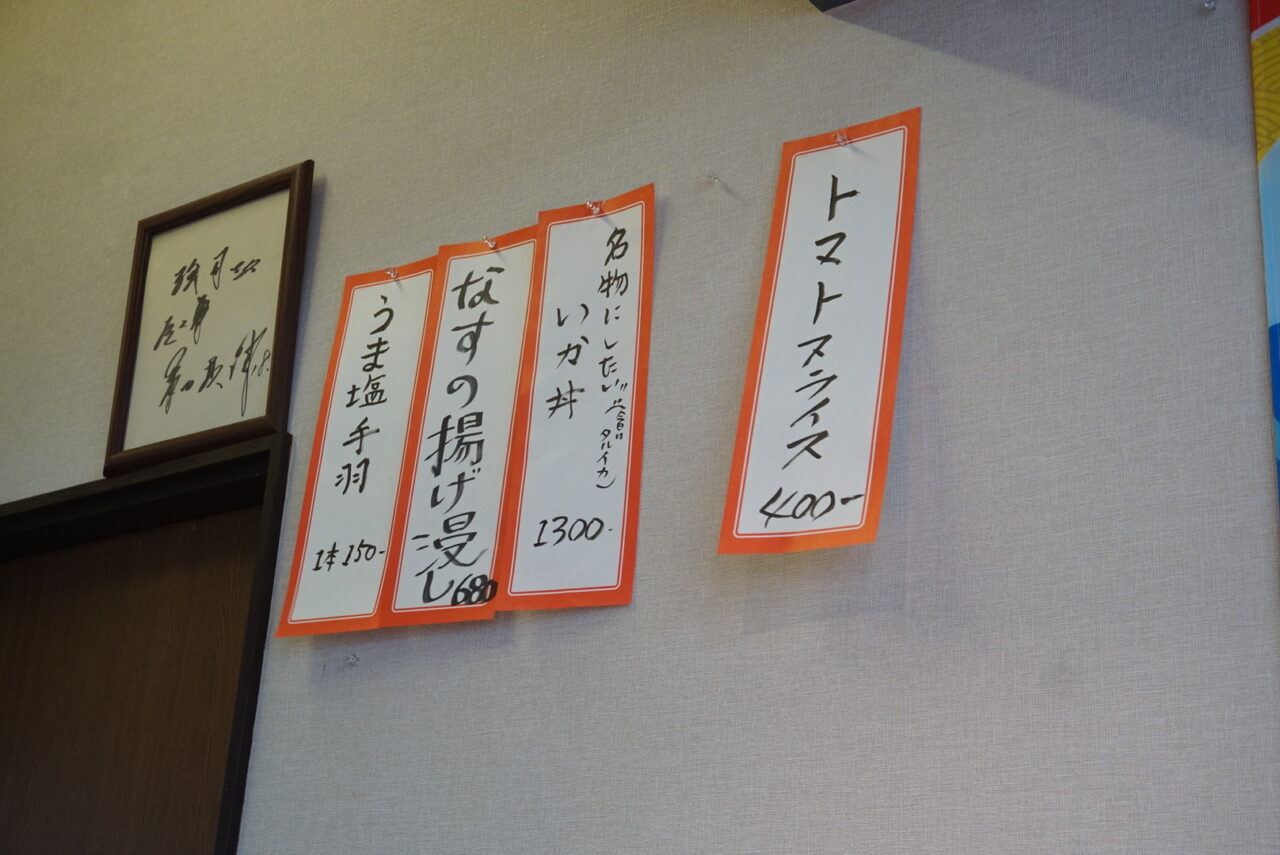 トマトスライス
400-
名物にしたい!!
(今日は
タルイカ)
いか丼
1300-
なすの揚げ浸し
680
うま塩手羽
1本150-